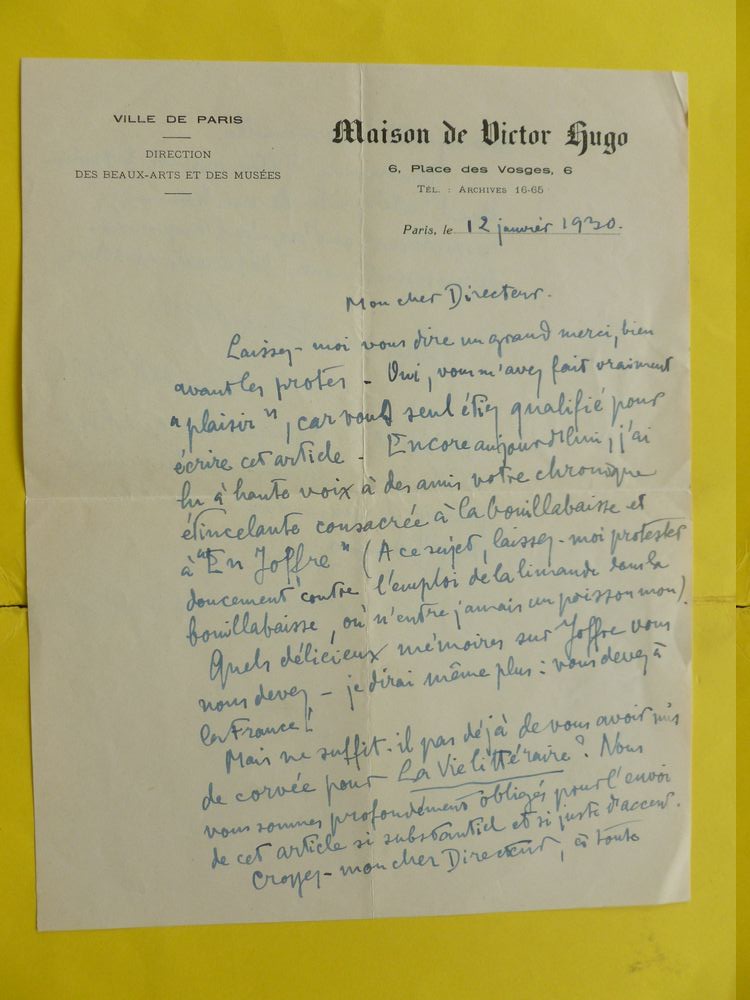 VILLE DE PARIS
DIRECTION
DES BEAUX-ARTS ET DES MUSÉES
Maison de Victor Hugo
6, Place des Vosges, 6
TÉL. : ARCHIVES 16-65
Paris, le 12 janvier 1930.
Mon cher Directeur.
Laissez-moi vous dire un grand merci, bien
avant les protes - Oui, vous m'avez fait vraiment
"plaisir", car vous seul étiez qualifié pour
écrire cet article - Encore aujourd'hui, j'ai
lu à haute voix à des amis votre chronique
étincelante consacrée à la bouillabaisse et
à "En Joffre" (A ce sujet, laissez-moi protester
doucement contre l'emploi de la limande dans la
bouillabaisse, où n'entre jamais un poisson mou).
Quels délicieux mémoires sur Joffre vous
nous devez - je dirai même plus : vous devez à
la France !
Mais ne suffit-il pas déjà de vous avoir mis
de corvée pour La Vie littéraire ? Nous
vous sommes profondément obligés pour l'envoi
de cet article si substantiel et si juste d'accent.
Croyez-mon cher Directeur, à toute